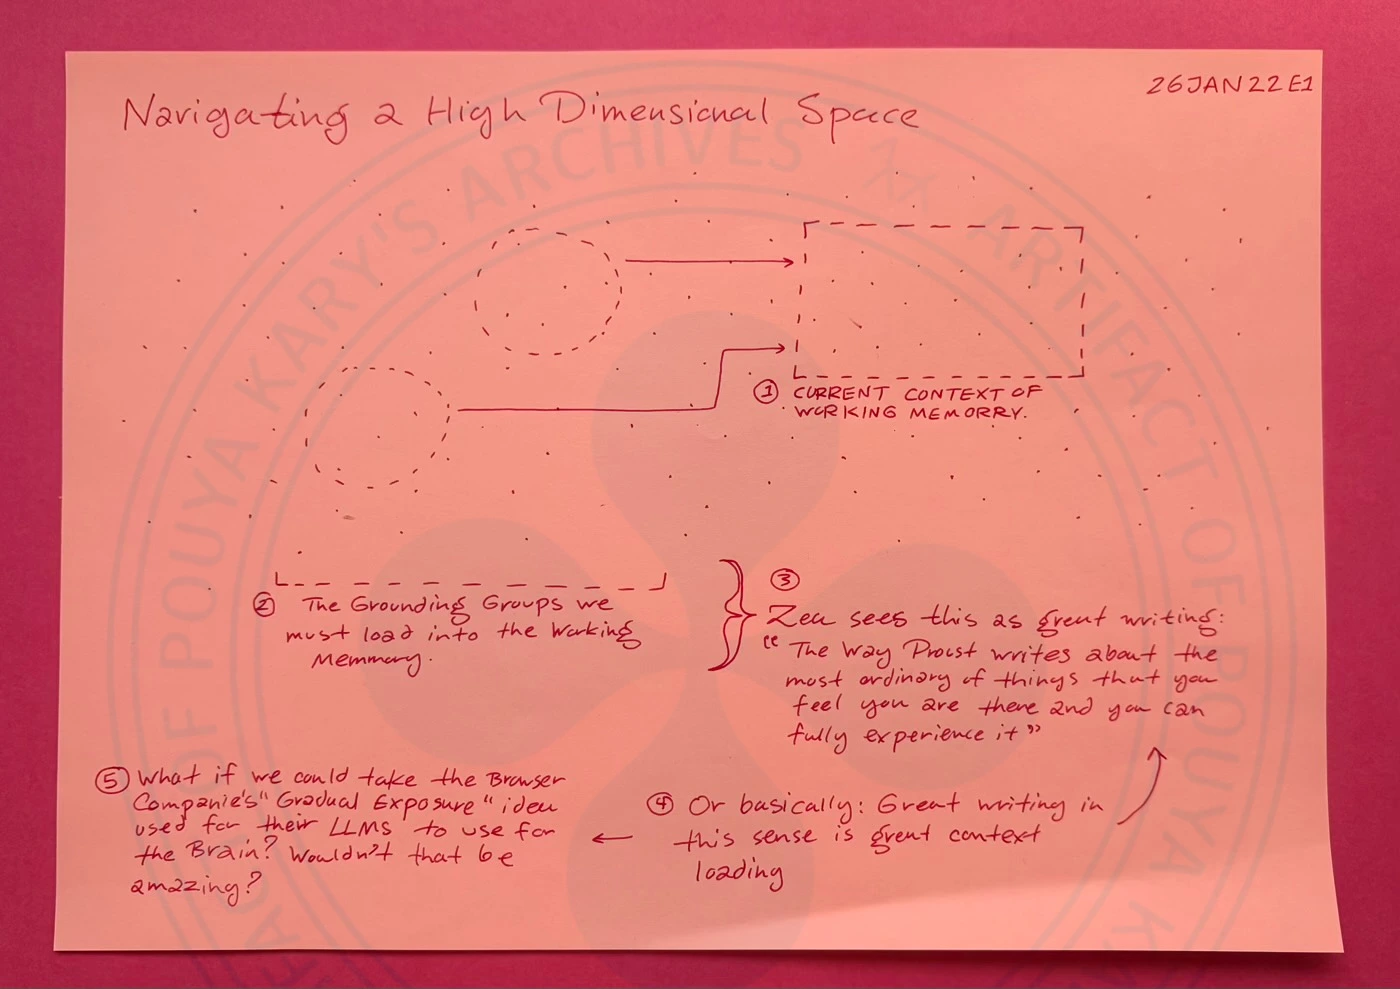 26JAN22E1
Navigating a High Dimensional Space
① CURRENT CONTEXT OF
WORKING MEMORRY.
② The Grounding Groups we
must load into the Working
Memmory.
③
Zea sees this as great writing:
“The Way Proust writes about the
most ordinary of things that you
feel you are there and you can
fully experience it”
④ Or basically: Great writing in
this sense is great context
loading
⑤ What if we could take the Browser
Companie's "Gradual Exposure" idea
used for their LLMS to use for
the Brain? Wouldn't that be
amazing?
ARTIFACT OF POUYA KARY'S ARCHIVES